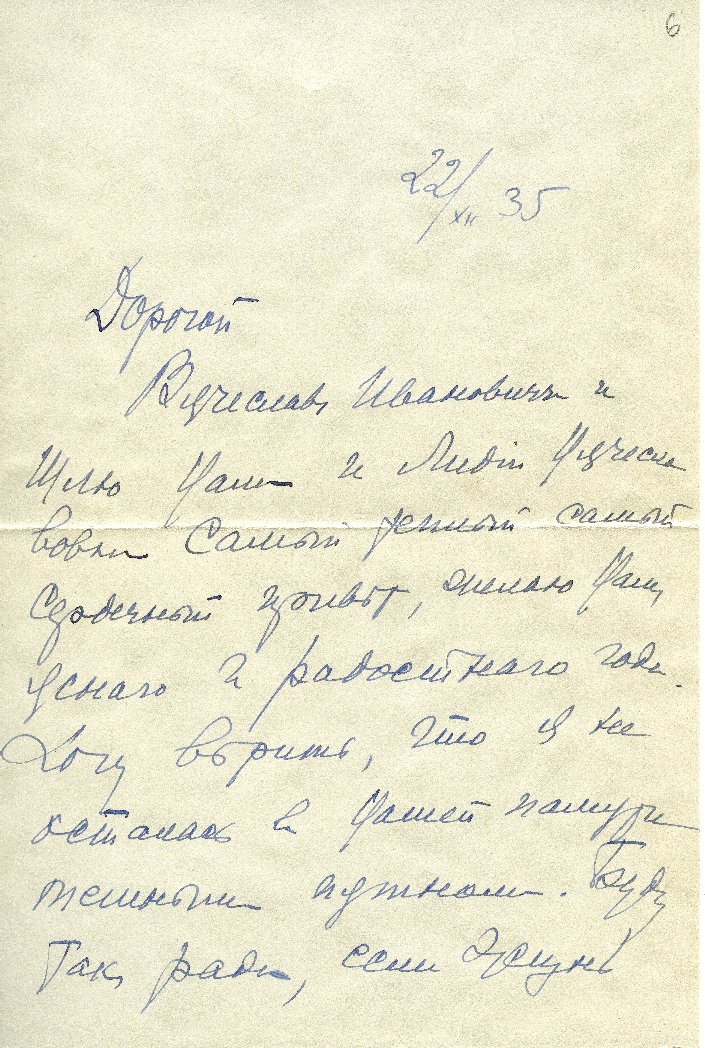 6
22/XII 35
Дорогой
Вячеслав Ивановичъ и
Шлю Вам и Лидіи Вячесла
вовны самый теплый самый
сердечный привѣт, желаю Вам,
яснаго и радостнаго года.
Хочу вѣрить, что я не
осталась в Вашей памяти
темным пятном. Буду
так рада, если жизнь